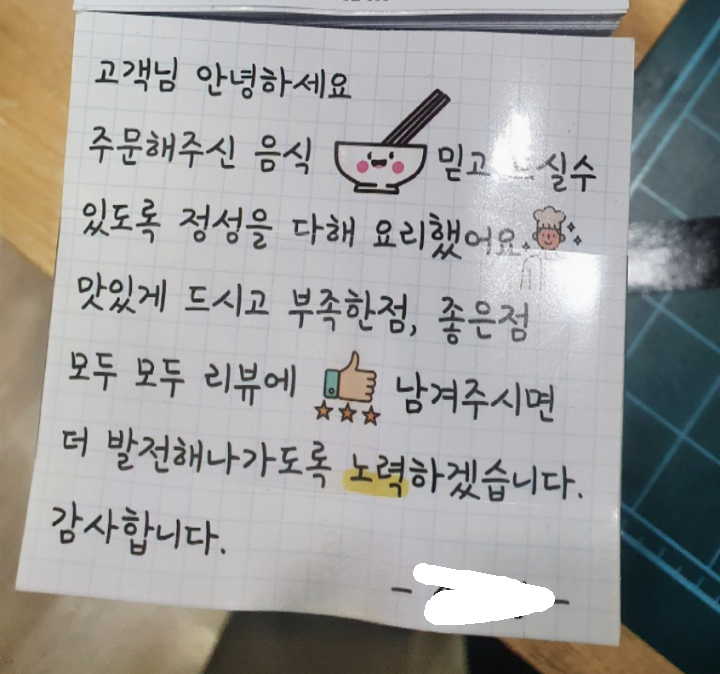 고객님 안녕하세요
주문해주신 음식 믿고 드실수
있도록 정성을 다해 요리했어요
맛있게 드시고 부족한점, 좋은점
모두 모두 리뷰에 남겨주시면
더 발전해나가도록 노력하겠습니다.
감사합니다.